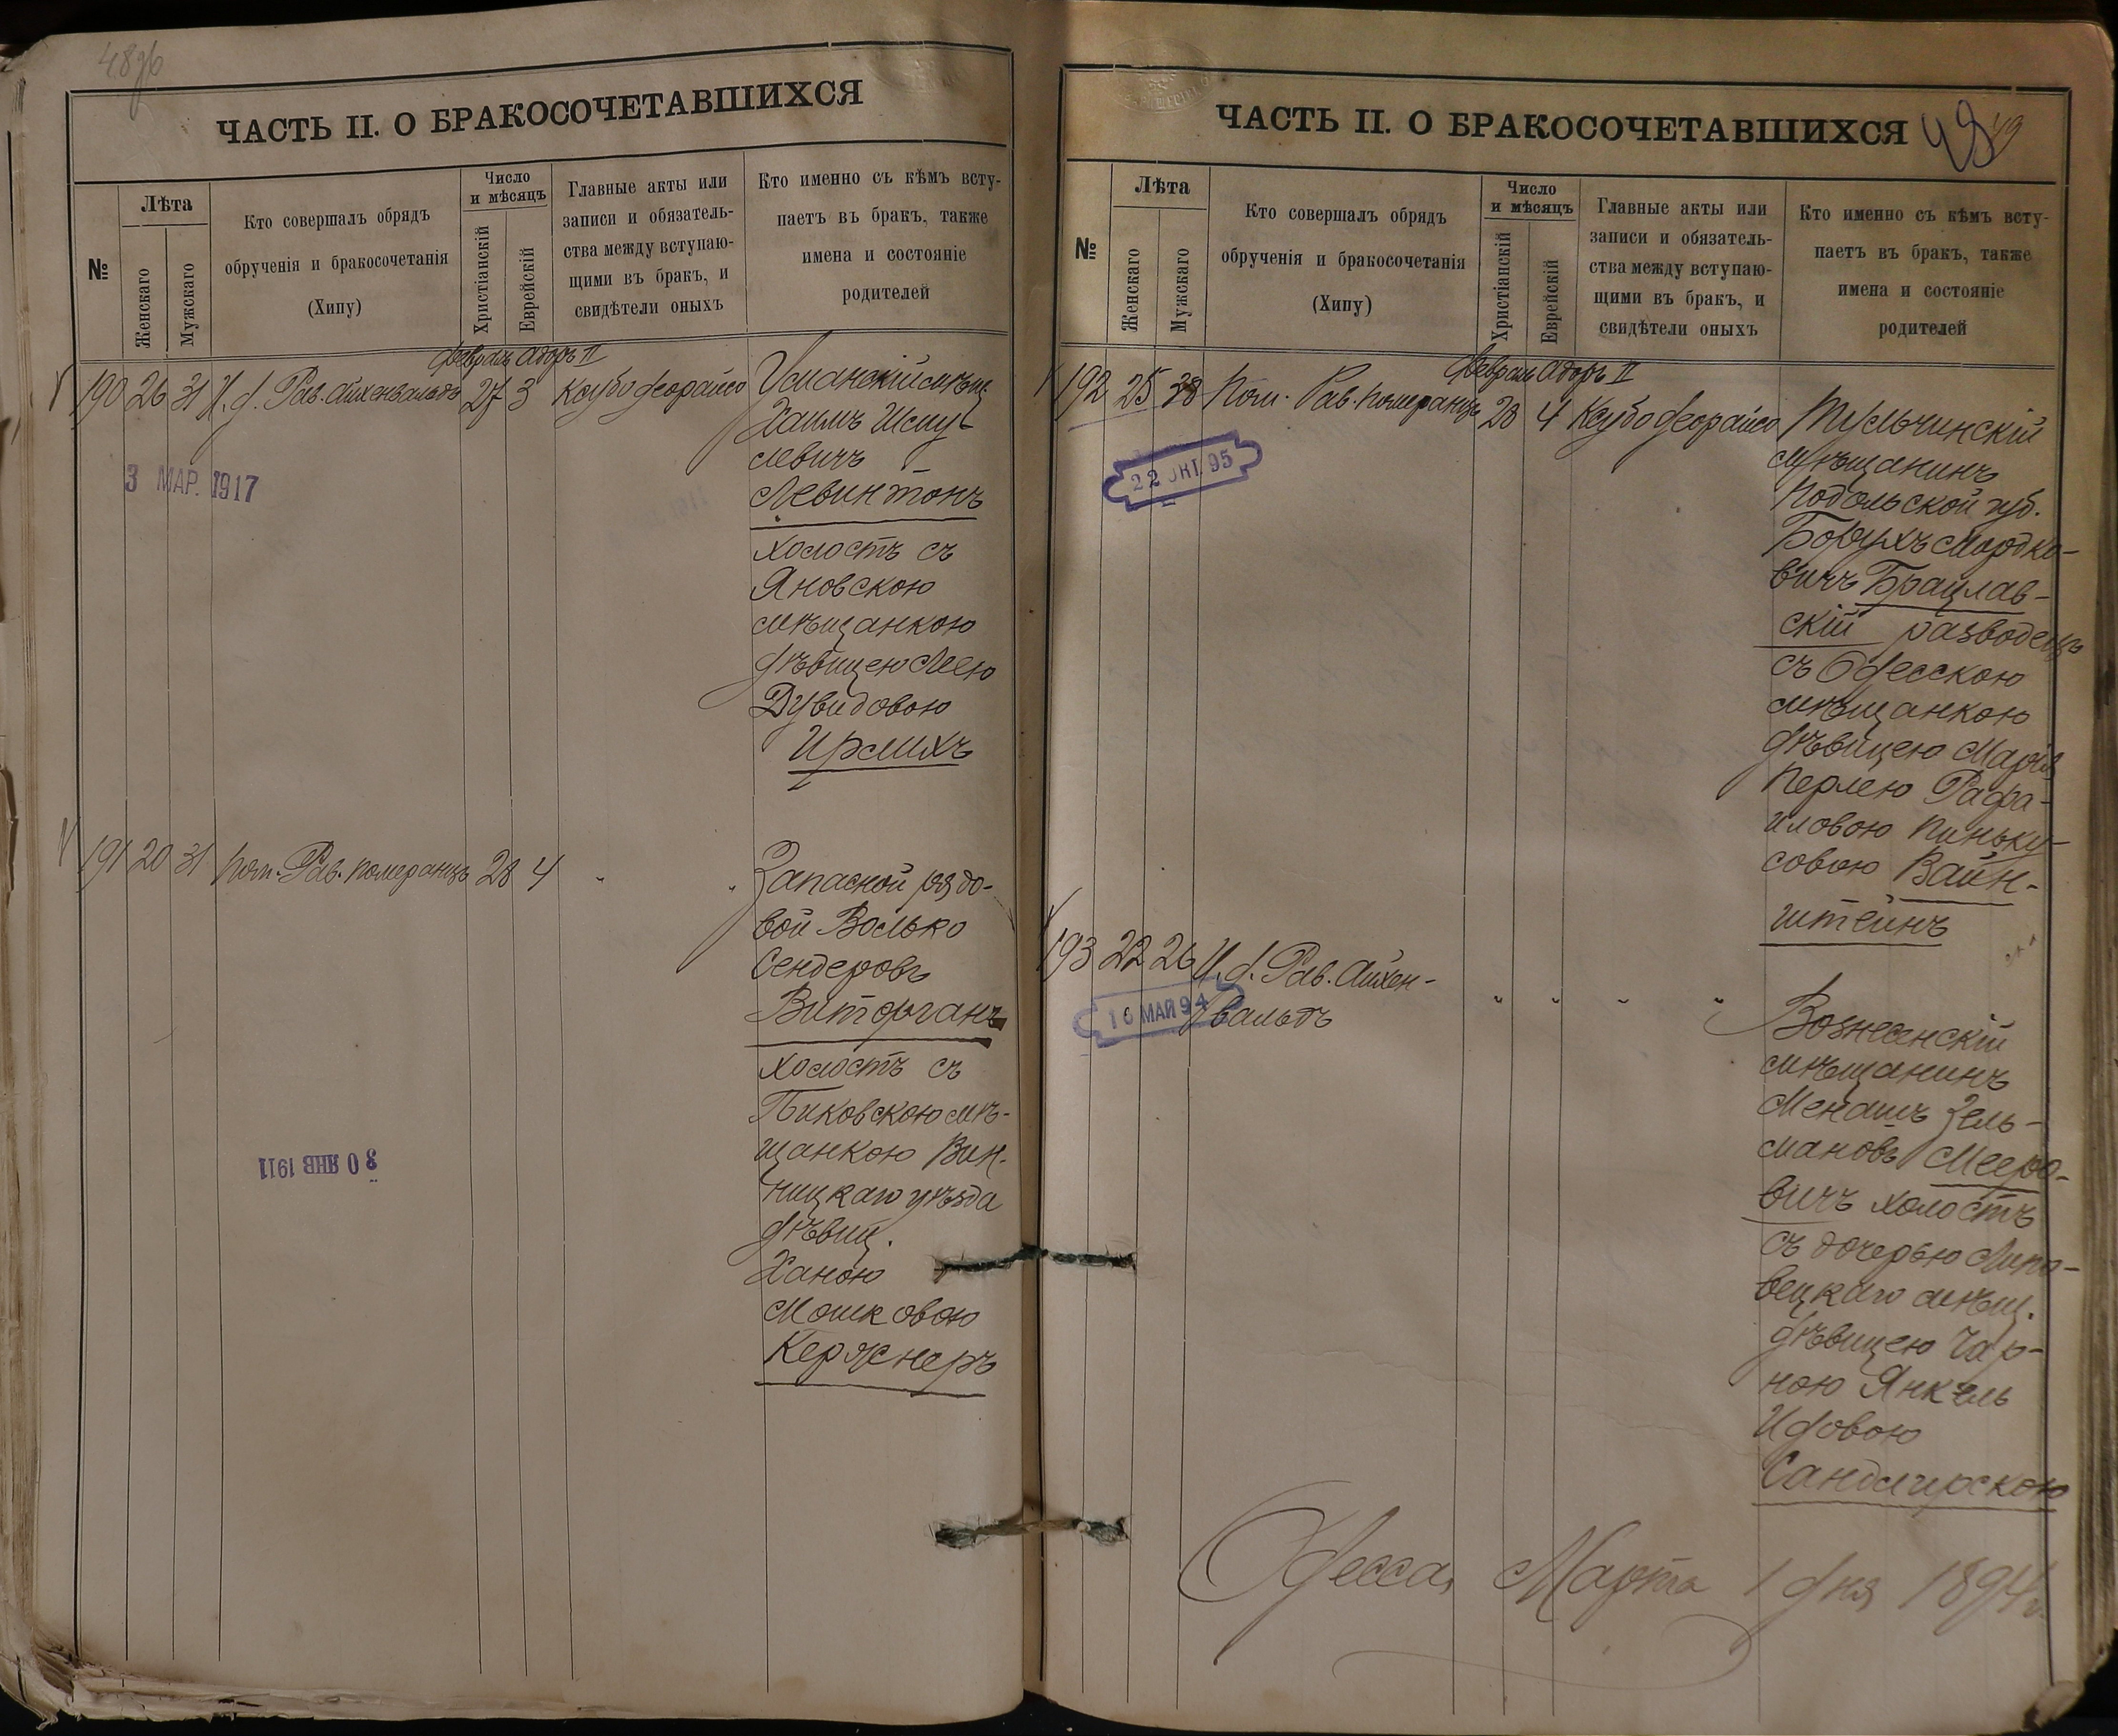 48об
ЧАСТЬ II. О БРАКОСОЧЕТАВШИХСЯ
№
Лѣта
Женскаго
Мужскаго
Кто совершалъ обрядъ
обрученія и бракосочетанія
(Хипу)
Число
и мѣсяцъ
Христіанскій
Еврейскій
Главные акты или
записи и обязатель-
ства между вступаю-
щими въ бракъ, и
свидѣтели оныхъ
Кто именно съ кѣмъ всту-
паетъ въ бракъ, также
имена и состояніе
родителей
Февраль Адоръ II
190 26 31 И. д. Рав. Айхенвальдъ 27 3 Ксубо деорайсо Уманскій мѣщ.
Хаимъ Шму-
левичъ
Левинтонъ
холостъ съ
Яновскою
мѣщанкою
дѣвицею Леею
Дувидовою
Ирлихъ
3 МАР. 1917
191 20 31 Пом. Рав. Померанцъ 28 4 " " Запасной рядо-
вой Волько
Сендеровъ
Виторганъ
холостъ съ
Пиковскою мѣ-
щанкою Вин-
ницкаго уѣзда
дѣвиц.
Ханою
Мошковою
Кержнеръ
30 ЯНВ 1911
ЧАСТЬ II. О БРАКОСОЧЕТАВШИХСЯ
49
49
№
Лѣта
Женскаго
Мужскаго
Кто совершалъ обрядъ
обрученія и бракосочетанія
(Хипу)
Число
и мѣсяцъ
Христіанскій
Еврейскій
Главные акты или
записи и обязатель-
ства между вступаю-
щими въ бракъ, и
свидѣтели оныхъ
Кто именно съ кѣмъ всту-
паетъ въ бракъ, также
имена и состояніе
родителей
Февраль Адоръ II
192 25 38 Пом. Рав. Померанцъ 28 4 Ксубо деорайсо Тульчинскій
мѣщанинъ
Подольской губ.
Борухъ Мордко-
вичъ Брацлав-
скій разводецъ
съ Одесскою
мѣщанкою
дѣвицею Марія
Перлею Рафа-
иловою Пиньку-
совою Вайн-
штейнъ
22 ОКТ. 95
193 22 26 И. д. Рав. Айхен-
вальдъ
" " " " Вознесенскій
мѣщанинъ
Менашъ Зель-
мановъ Мееро-
вичъ холостъ
съ дочерью Липо-
вецкаго мѣщ.
дѣвицею Чар-
ною Янкель
Идовою
Сандлирскою
16 МАЯ 94
Одесса, Марта 1 дня 1894 г.